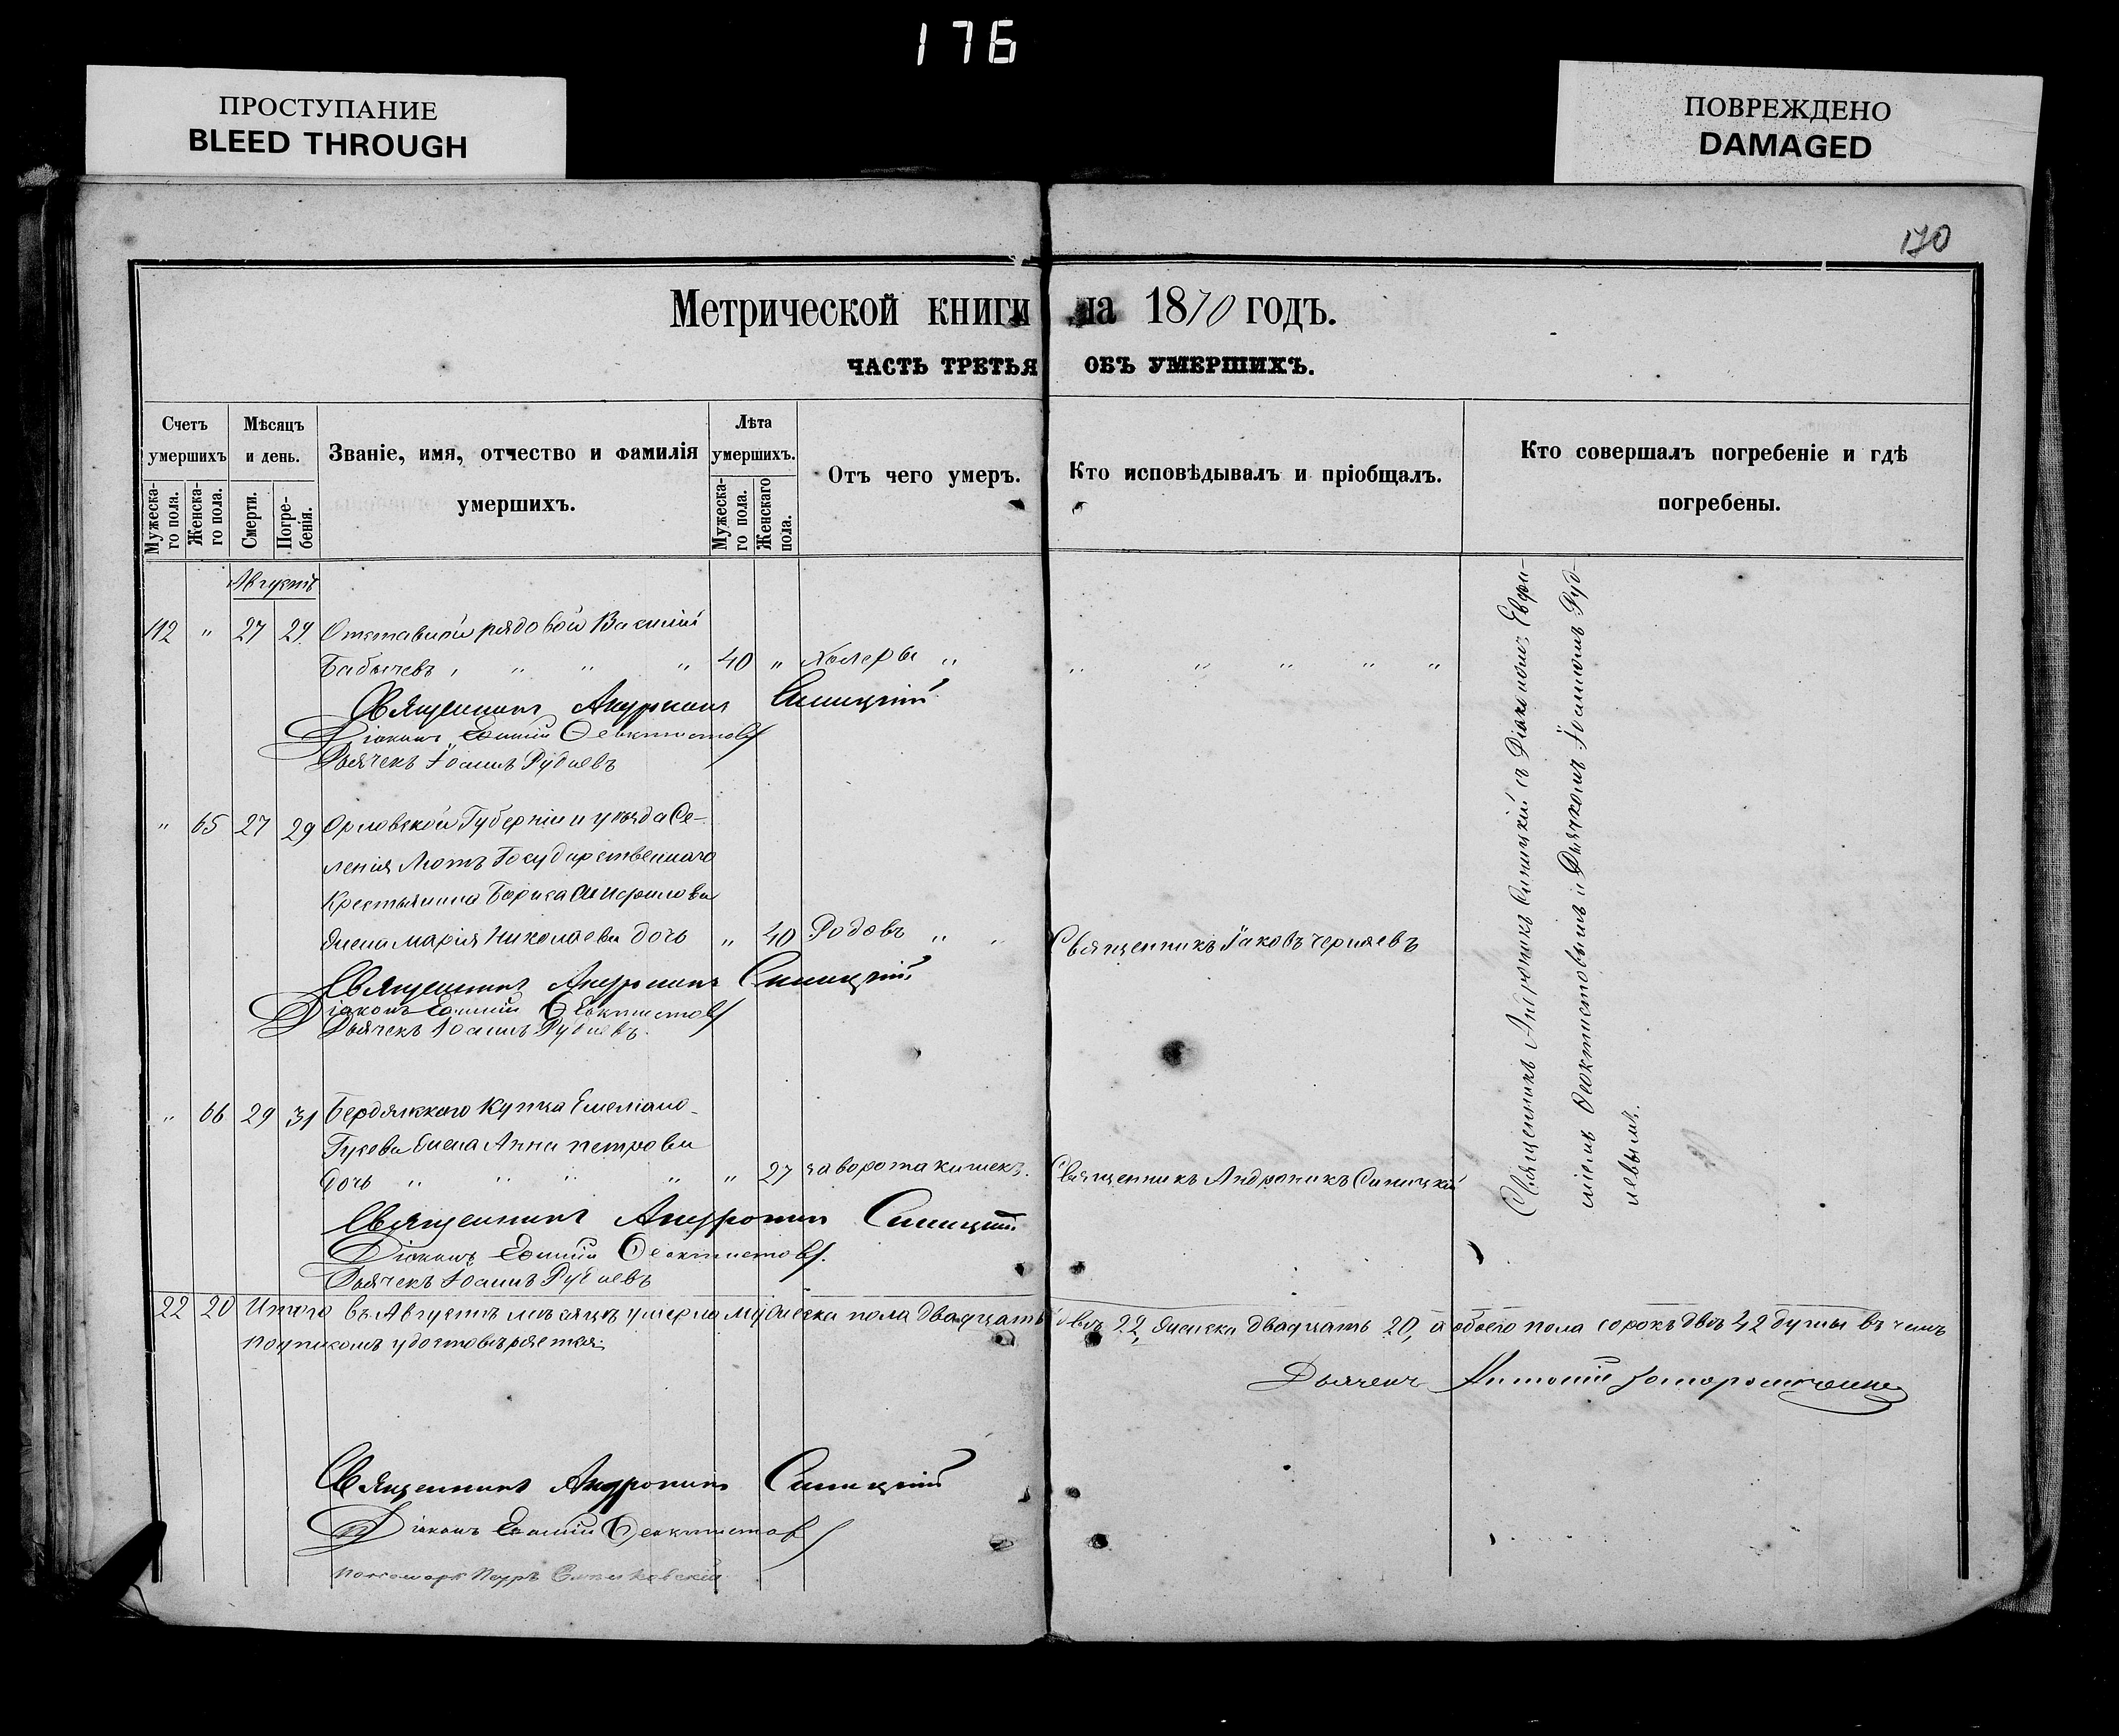 176
ПРОСТУПАНИЕ
BLEED THROUGH
ПОВРЕЖДЕНО
DAMAGED
170
Метрической книги на 1870 годъ.
ЧАСТЬ ТРЕТЬЯ ОБЪ УМЕРШИХЪ.
Счетъ умершихъ
Мужеска-го пола.
Женска-го пола.
Мѣсяцъ и день.
Смерти.
Погре-бенія.
Званіе, имя, отчество и фамилія умершихъ.
Лѣта умершихъ.
Мужеска-го пола.
Женскаго пола.
Отъ чего умеръ.
Кто исповѣдывалъ и пріобщалъ.
Кто совершалъ погребеніе и гдѣ погребены.
Августъ
112 " 27 29 Отставной рядовой Василій
Бабычевъ " " " " 40 " Холеры " " " " " "
Священникъ Андроникъ Синицкій
Діаконъ Евѳимій Ѳеоктистовъ
Дьячекъ Іоаннъ Рудневъ
" 65 27 29 Орловской Губерніи и уѣзда Се-
ленія Лютъ Государственнаго
Крестьянина Бориса
жена Марія Николаева дочь " 40 Родовъ " " Священникъ Іаковъ Черняевъ
Священникъ Андроникъ Синицкій
Діаконъ Евѳимій Ѳеоктистовъ
Дьячекъ Іоаннъ Рудневъ.
" 66 29 31 Бердянскаго Купца Емеліана
Гусева жена Анна Петрова
дочь " " " " " 27 заворота кишекъ. Священникъ Андроникъ Синицкій
Священникъ Андроникъ Синицкій
Діаконъ Евѳимій Ѳеоктистовъ.
Дьячекъ Іоаннъ Рудневъ
Священникъ Андроникъ Синицкій съ Діакономъ Евѳи-
міемъ Ѳеоктистовымъ и Дьячкомъ Іоанномъ Руд-
невымъ.
22 20 Итого въ Августѣ мѣсяцѣ умерло мужеска пола двадцать двѣ 22 женска двадцать 20, а обоего пола сорокъ двѣ 42 души въ чемъ
подписомъ удостовѣряется:
Дьячекъ Антоній
Священникъ Андроникъ Синицкій
Діаконъ Евѳимій Ѳеоктистовъ
Пономарь Петръ